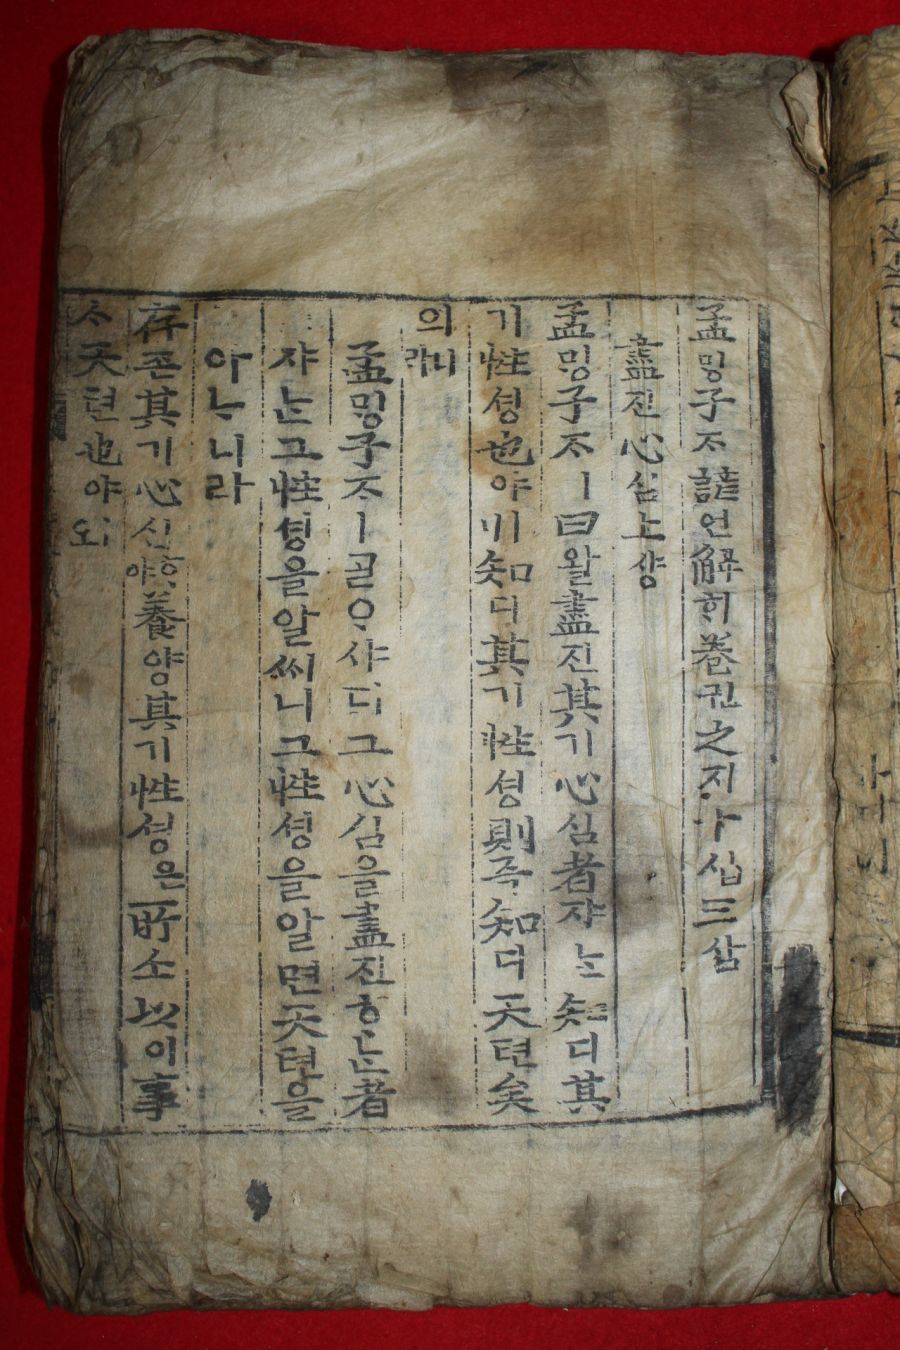 孟ᄆᆡᆼ子ᄌᆞ諺언解ᄒᆡ卷권之지十십三삼
盡진心심上샹
孟ᄆᆡᆼ子ᄌᆞㅣ曰왈盡진其기心심者쟈ᄂᆞᆫ知디其
기性셩也야ㅣ니知디其기性셩則즉知디天텬矣
의니라
孟ᄆᆡᆼ子ᄌᆞㅣᄀᆞᆯᄋᆞ샤ᄃᆡ그心심을盡진ᄒᆞᄂᆞᆫ者
쟈ᄂᆞᆫ그性셩을알씨니그性셩을알면天텬을
아ᄂᆞ니라
存존其기心심ᄒᆞ야養양其기性셩은所소以이事
ᄉᆞ天텬也야ㅣ오